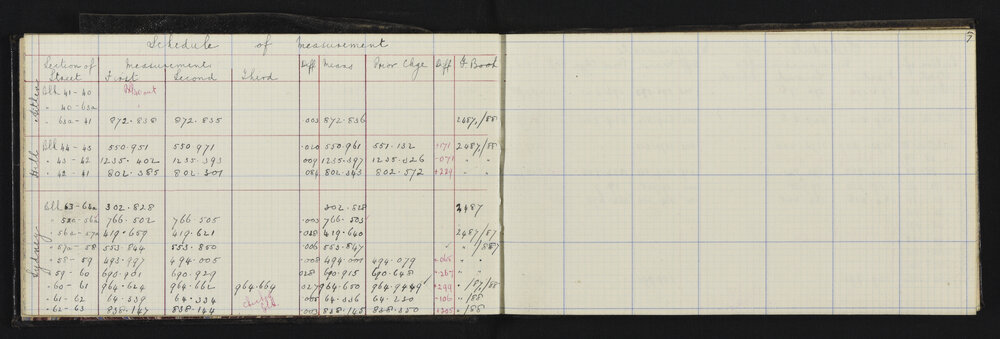 Schedule of Measurement
5
Section of Street Measurement Diff Means Prior Chge Diff F Book
First Second Third
Bll 41-40
" 40-63a "
" 63a-41 872.838 872.835 .003 872.836 2487/88
Hill
Bll 44-43 550.951 550.971 .020 550.961 551.132 +171 2487/88
" 43-42 1235.402 1235.393 .009 1235.397 1235.326 -071 " "
" 42-41 802.385 802.301 .084 802.343 802.572 +229 " "
Sydney
Bll 63-64a 302.828 302.828 2487
766.502 766.505 .003 766.503
" 56a-57a 419.659 419.621 .028 419.640 2487/87
" 57a-58 553.844 553.850 .006 553.847 " "/887
" 58-59 493.997 494.005 .008 494.001 494.079 " "
" 59-60 690.901 690.929 028 690.915 690.648 -267 " "
" 60-61 964.624 964.662 964.664 .027 964.650 964.9449 +299 " /87/88
" 61-62 64.339 64.334 .005 64.336 64.230 -106 " /88
" 62-63 838.147 838.144 .003 838.145 838.350 +205 " /88